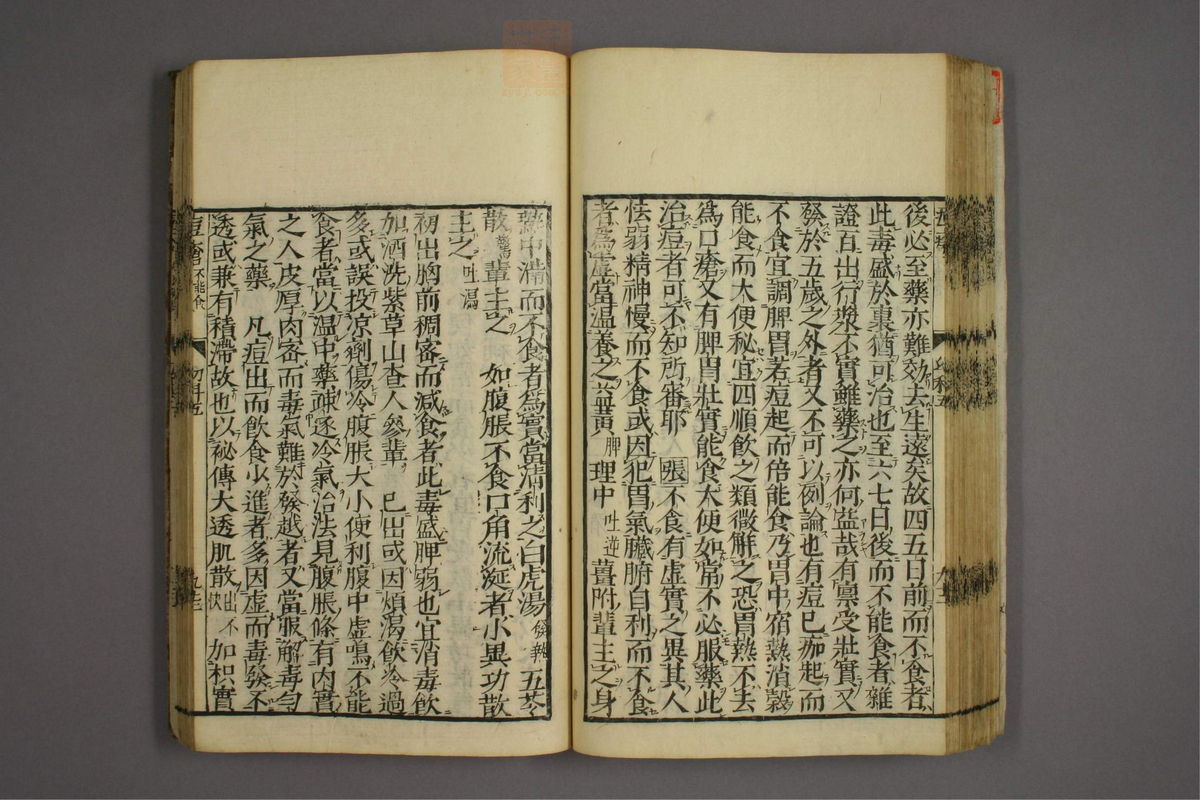 後必至藥亦難効去生遠矣故四五日前而不食者
此毒盛於裏猶可治也至六七日後而不能食者雜
證百出行漿不實雖藥之亦何益哉有禀受壯實又
發於五歲之外者又不可以例論也有痘已茄起而
不食宜調脾胃若痘起而倍能食乃胃中宿熱消穀
能食而大便秘宜四順飲之類微解之恐胃熱不去
爲口瘡又有脾胃壯實能食大便如常不必服藥此
治痘者可不知所審耶 張不食有虚實之異其人
怯弱精神慢而不食或因犯胃氣臟腑自利而不食
者爲虚當温養之益黄 脾 理中 吐逆 薑附輩主之身
熱中滿而不食者爲實當清利之白虎湯 發熱 五苓
散 驚 輩主之 如腹脹不食口角流涎者小異功散
主之 吐瀉
初出胸前稠密而減食者此毒盛脾弱也宜消毒飲
加酒洗紫草山查人參輩 已出或因煩渴飲冷過
多或誤投凉劑傷冷腹脹大小便利腹中虚鳴不能
食者當以温中藥疎逐冷氣治法見腹脹條有内實
之人皮厚肉密而毒氣難於發越者又當服解毒勻
氣之藥 凡痘出而飲食少進者多因虚而毒發不
透或兼有積滯故也以秘傳大透肌散 出不快 加枳實
痘瘡 不能食